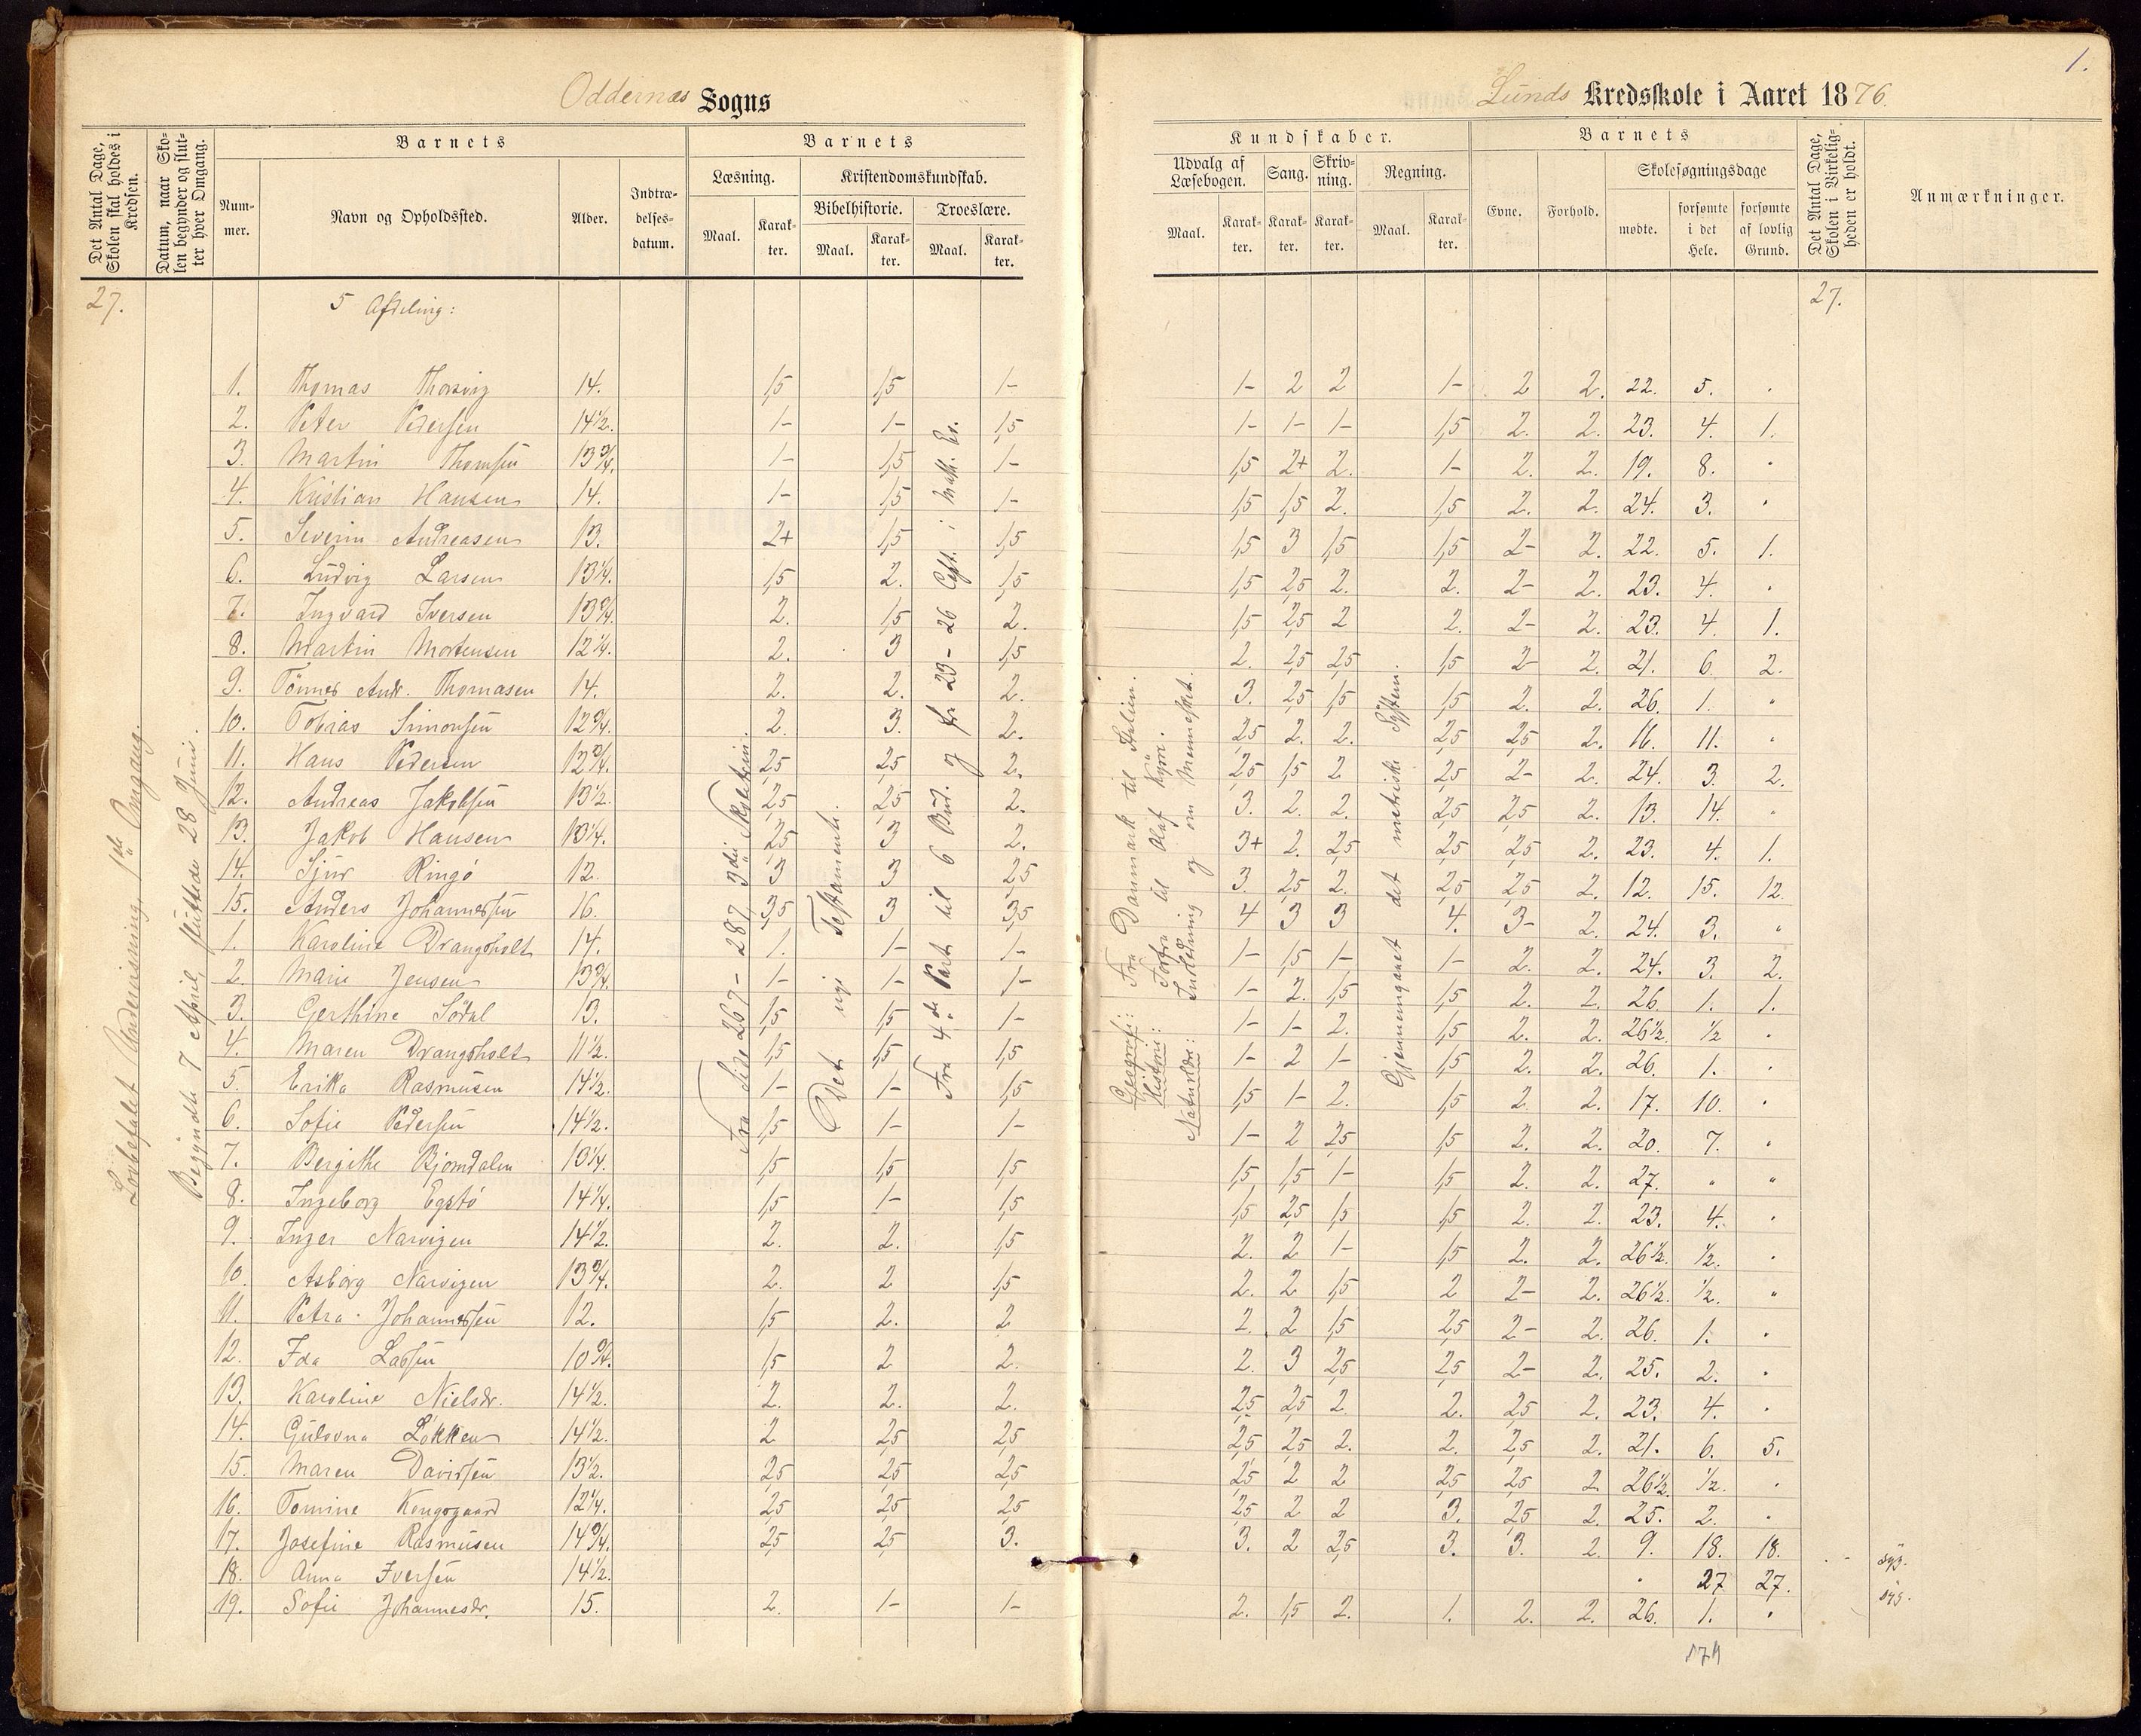 1.
Oddernæs Sogns
Lunds Kredsskole i Aaret 1876.
Det Antal Dage, Skolen skal holdes i Kredsen.
Datum, naar Skolen begynder og slutter hver Omgang.
Barnets
Nummer.
Navn og Opholdssted.
Alder.
Indtrædelsesdatum.
Barnets
Læsning.
Maal.
Karakter.
Kristendomskundskab.
Bibelhistorie.
Maal.
Karakter.
Troeslære.
Maal.
Karakter.
Kundskaber.
Udvalg af Læsebogen.
Maal.
Karakter.
Sang.
Karakter.
Skrivning.
Karakter.
Regning.
Maal.
Karakter.
Barnets
Evne.
Forhold.
Skolesøgningsdage
mødte.
forsømte i det Hele.
forsømte af lovlig Grund.
Det Antal Dage, Skolen i Virkeligheden er holdt.
Anmærkninger.
27. 5 Afdeling: 27.
Lovbefalet Undervisning, 1ste Omgang.
Begyndte 7 April, sluttede 28 Juni.
Fra Side 267 – 287 3die Skoletrin.
Det nye Testamente.
Fra 4de Part til 6 Bud. og fr 23 – 26 Cap. i Matth. Ev.
Geografi: Fra Danmark til Italien.
Historie: Fortra til Olaf Kyrre.
Naturlære: Indledning og om Mennesket.
Gjennemgaaet det metriske System.
1. Thomas Thorsvig 14. 1,5 1,5 1- 1- 2 2 1- 2 2. 22. 5. "
2. Peter Pedersen 14½. 1- 1- 1,5 1- 1- 1- 1,5 2. 2. 23. 4. 1.
3. Martin Thomsen 13¾. 1- 1,5 1- 1,5 2+ 2. 1- 2. 2. 19. 8. "
4. Kristian Hansen 14. 1- 1,5 1- 1,5 1,5 2. 1,5 2. 2. 24. 3. "
5. Severin Andreasen 13. 2+ 1,5 1,5 1,5 3 1,5 1,5 2- 2. 22. 5. 1.
6. Ludvig Larsen 13¼. 1,5 2. 1,5 1,5 2,5 2. 2. 2- 2. 23. 4. "
7. Ingvard Iversen 13¾. 2. 1,5 2. 1,5 2,5 2 2. 2- 2. 23. 4. 1.
8. Martin Mortensen 12¼. 2. 3 1,5 2. 2,5 2,5 1,5 2- 2. 21. 6. 2.
9. Tönnes Andr. Thomasen 14. 2. 2. 2. 3. 2,5 1,5 1,5 2. 2. 26. 1. "
10. Tobias Simonsen 12¾. 2. 3. 2. 2,5 2. 2. 2,5 2,5 2. 16. 11. "
11. Hans Pedersen 12¾. 2,5 2,5 2. 2,5 1,5 2 2,5 2- 2. 24. 3. 2.
12. Andreas Jakobsen 13½. 2,5 2,5 2. 3. 2. 2. 2,5 2,5 2. 13. 14. "
13. Jakob Hansen 13¼. 2,5 3 2. 3+ 2. 2,5 2,5 2,5 2. 23. 4. 1.
14. Sjur Ringö 12. 3 3 2,5 3. 2,5 2. 2,5 2,5 2. 12. 15. 12.
15. Anders Johannessen 16. 3,5 3 3,5 4 3 3 4. 3- 2. 24. 3. "
1. Karoline Drangsholt 14. 1. 1- 1- 1- 1,5 1- 1- 2. 2. 24. 3. 2.
2. Marie Jensen 13¾. 1- 1- 1- 1- 2. 1,5 1,5 2. 2. 26. 1. 1.
3. Gerthine Södal 13. 1,5 1,5 1- 1- 1- 2. 1,5 2. 2. 26½. ½ "
4. Maren Drangsholt 11½. 1,5 1,5 1,5 1- 2 1- 1,5 2. 2. 26. 1. "
5. Erika Rasmusen 14½. 1- 1- 1,5 1,5 1- 2. 1,5 2. 2. 17. 10. "
6. Sofie Pedersen 14½. 1,5 1- 1- 1- 2 2,5 1,5 2. 2. 20. 7. "
7. Bergithe Bjorndalen 13¼. 1,5 1,5 1,5 1,5 1,5 1- 1,5 2. 2. 27. " "
8. Ingeborg Egstö 14¼. 1,5 1- 1,5 1,5 2,5 1,5 1,5 2. 2. 23. 4. "
9. Inger Narvigen 14½. 2. 2. 1,5 2. 2 1- 1,5 2. 2. 26½. ½. "
10. Asborg Narvigen 13¾. 2. 2 1,5 2. 2 1,5 2 2- 2. 26½. ½. "
11. Petra Johannessen 12. 1,5 2. 2 2. 2 1,5 2,5 2- 2. 26. 1. "
12. Ida Lassen 10¾. 1,5 2 2. 2. 3 2,5 2,5 2- 2. 25. 2. "
13. Karoline Nielsdr. 14½. 2. 2. 2. 2,5 2,5 2 2. 2,5 2. 23. 4. "
14. Gulovna Lökken 14½. 2 2,5 2,5 2,5 2,5 2. 2. 2,5 2. 21. 6. 5.
15. Maren Davidsen 13½. 2,5 2,5 2,5 2,5 2 2 2,5 2,5 2 26½. ½. "
16. Tomine Kongsgaard 12¼. 2,5 2,5 2,5 2,5 2 2 3. 2,5 2. 25. 2. "
17. Josefine Rasmusen 14¾. 2,5 2,5 3. 3. 2 2,5 3. 3. 2. 9. 18. 18. syg.
18. Anna Iversen 14½. " 27 27. syg.
19. Sofie Johannesdr. 15. 2. 1- 1- 2. 1,5 2. 1. 2. 2. 26. 1. "
174